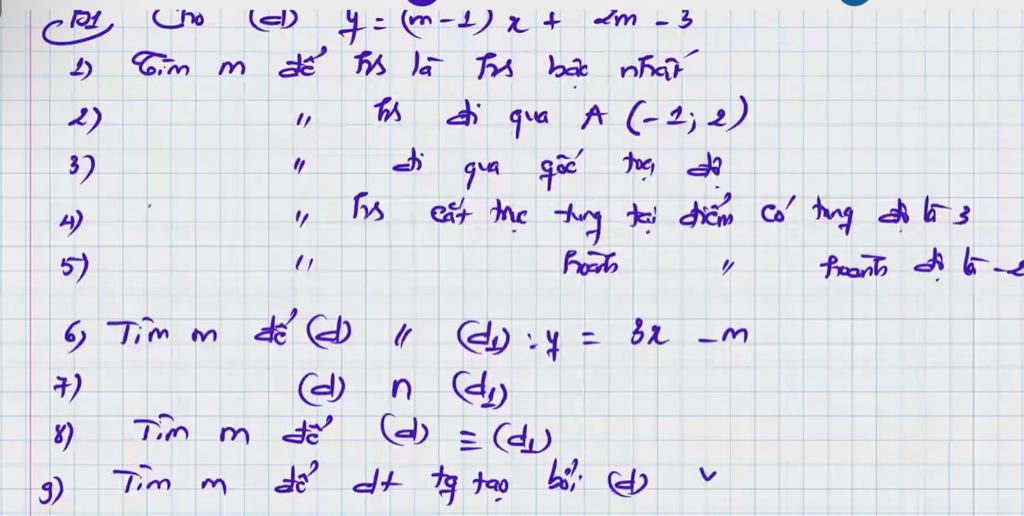 B1 Cho (d) y = (m - 1) x + 2m - 3
1) Tìm m để hs là hs bậc nhất
2) " hs đi qua A (-1; 2)
3) " đi qua gốc tọa độ
4) " hs cắt trục tung tại điểm có tung độ là 3
5) " hoành " hoành độ là -2
6) Tìm m để (d) // (d1) : y = 3x - m
7) (d) ∩ (d1)
8) Tìm m để (d) ≡ (d1)
9) Tìm m để dt tg tạo bởi (d) v